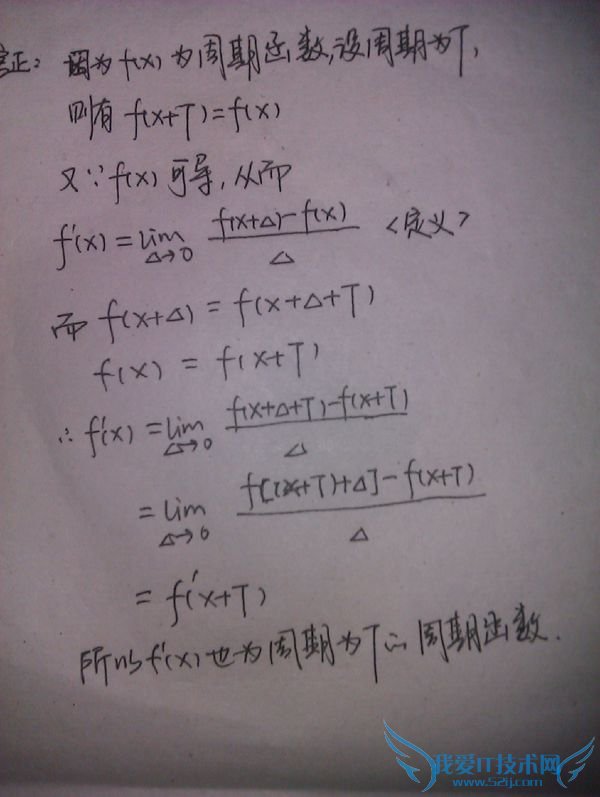 证: 因为 f(x) 为周期函数,设周期为T,
则有 f(x+T)=f(x)
又∵ f(x) 可导, 从而
f'(x) = lim Δ→0 f(x+Δ)-f(x) / Δ <定义>
而 f(x+Δ) = f(x+Δ+T)
f(x) = f(x+T)
∴ f'(x) = lim Δ→0 f(x+Δ+T)-f(x+T) / Δ
= lim Δ→0 f[(x+T)+Δ]-f(x+T) / Δ
= f'(x+T)
所以 f'(x) 也为周期为T的周期函数.
我爱IT技术网
www.52ij.com